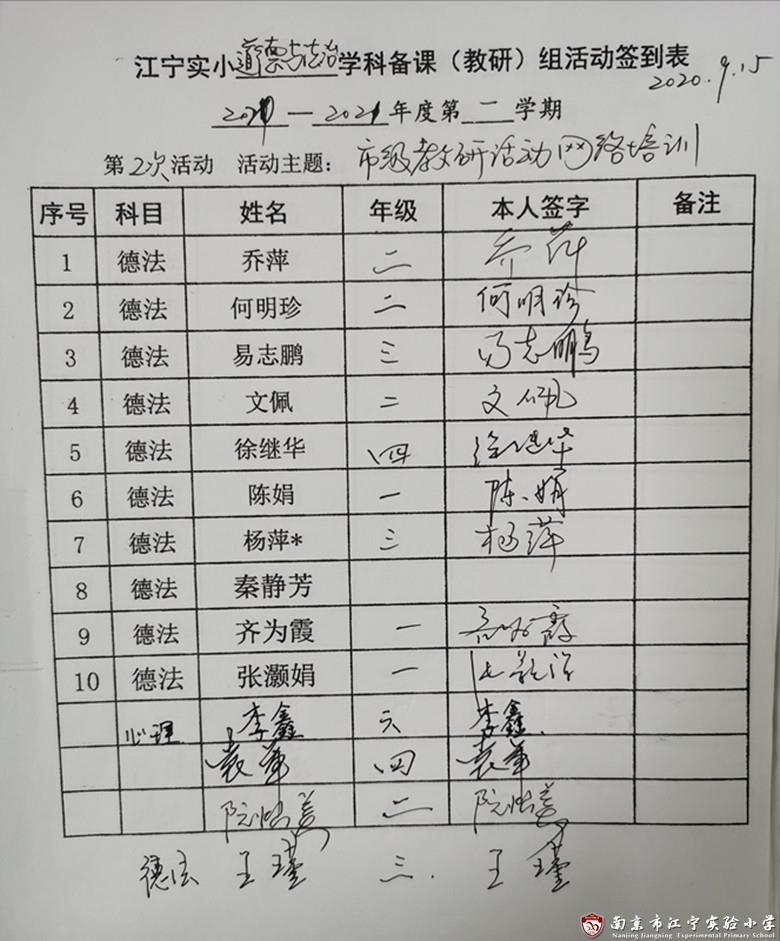 江宁实小道德与法治学科备课（教研）组活动签到表
2020.9.15
—2021年度第二学期
第2次活动 活动主题：市级教研活动网络培训
序号 科目 姓名 年级 本人签字 备注
1 德法 乔萍 二 乔萍
2 德法 何明珍 二 何明珍
3 德法 易志鹏 三 易志鹏
4 德法 文佩 二 文佩
5 德法 徐继华 四 徐继华
6 德法 陈娟 一 陈娟
7 德法 杨萍* 三 杨萍
8 德法 秦静芳
9 德法 齐为霞 一
10 德法 张灏娟 一
心理 李鑫 六 李鑫
四
二
德法 王瑾 三 王瑾
南京市江宁实验小学
Nanjing Jiangning Experimental Primary School